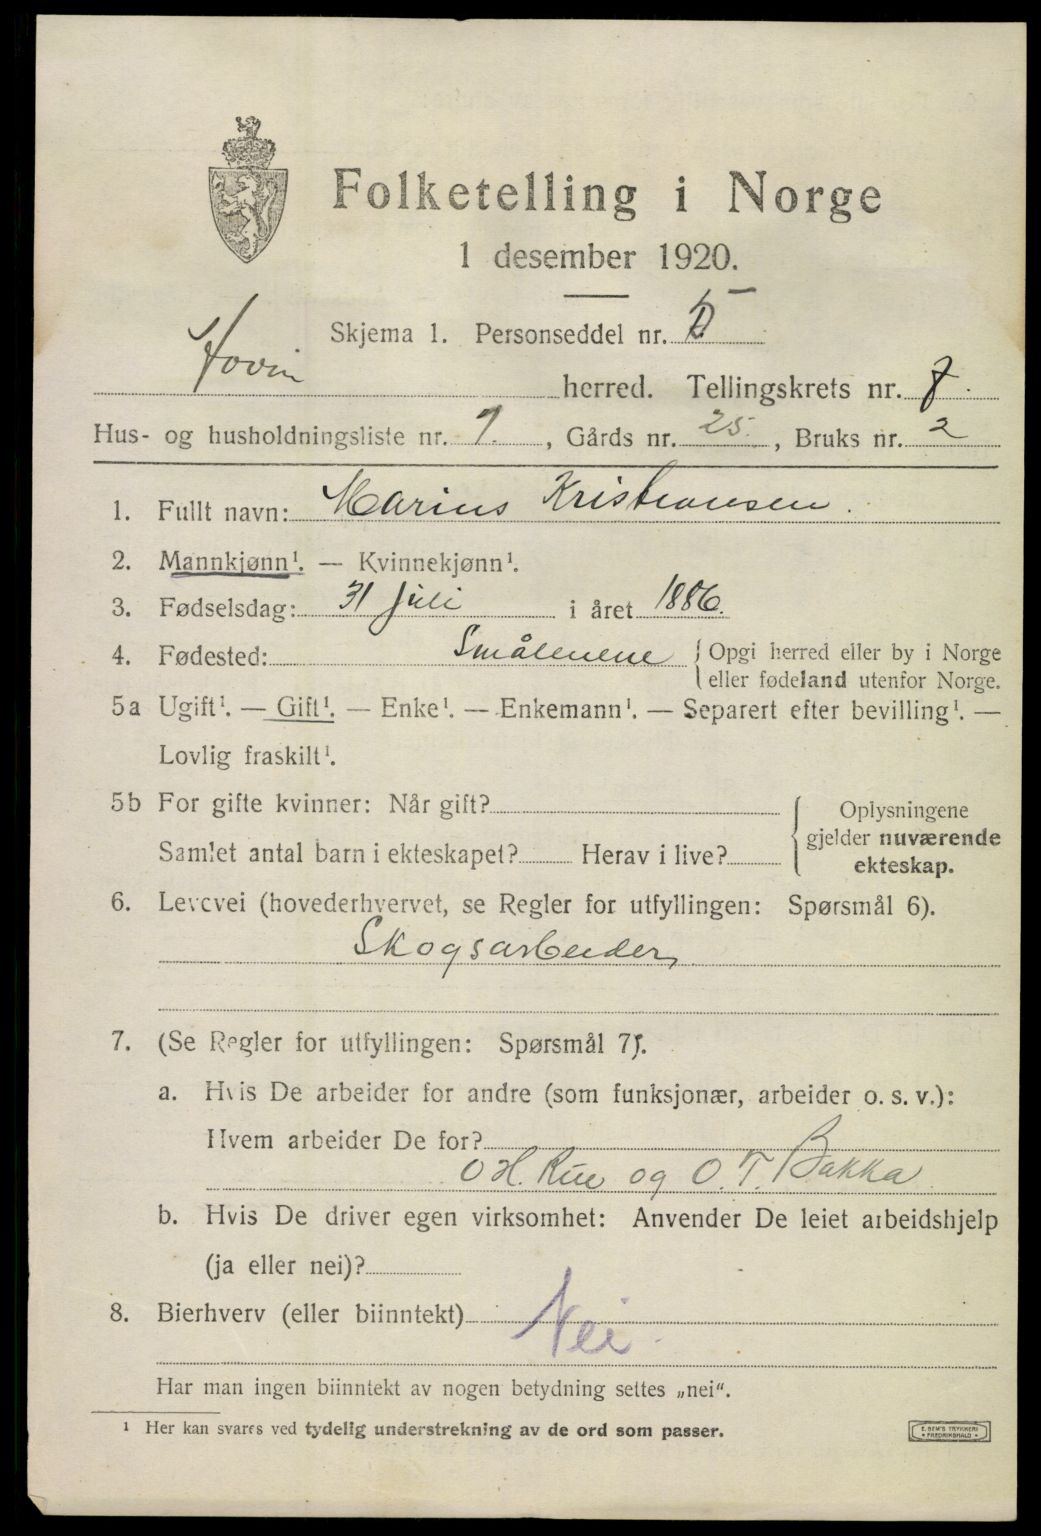 Folketelling i Norge
1 desember 1920.
Skjema 1. Personseddel nr.
Hovin herred. Tellingskrets nr. 7.
Hus- og husholdningsliste nr. 7., Gårds nr. 25., Bruks nr. 2
1. Fullt navn: Marius Kristiansen.
2. Mannkjønn¹. — Kvinnekjønn¹.
3. Fødselsdag: 31 juli i året 1886.
4. Fødested: Smålenene { Opgi herred eller by i Norge
eller fødeland utenfor Norge.
5a Ugift¹. — Gift¹. — Enke¹. — Enkemann¹. — Separert efter bevilling¹. —
Lovlig fraskilt¹.
5b For gifte kvinner: Når gift?
Samlet antal barn i ekteskapet? Herav i live?
Oplysningene
gjelder nuværende
ekteskap.
6. Levevei (hovederhvervet, se Regler for utfyllingen: Spørsmål 6).
Skogsarbeider,
7. (Se Regler for utfyllingen: Spørsmål 7).
a. Hvis De arbeider for andre (som funksjonær, arbeider o. s. v.):
Hvem arbeider De for?
O H. Rue og O. T. Bakka
b. Hvis De driver egen virksomhet: Anvender De leiet arbeidshjelp
(ja eller nei)?
8. Bierhverv (eller biinntekt) Nei.
Har man ingen biinntekt av nogen betydning settes „nei“.
¹ Her kan svares ved tydelig understrekning av de ord som passer.
E. SEM'S TRYKKERI
• FREDRIKSHALD •